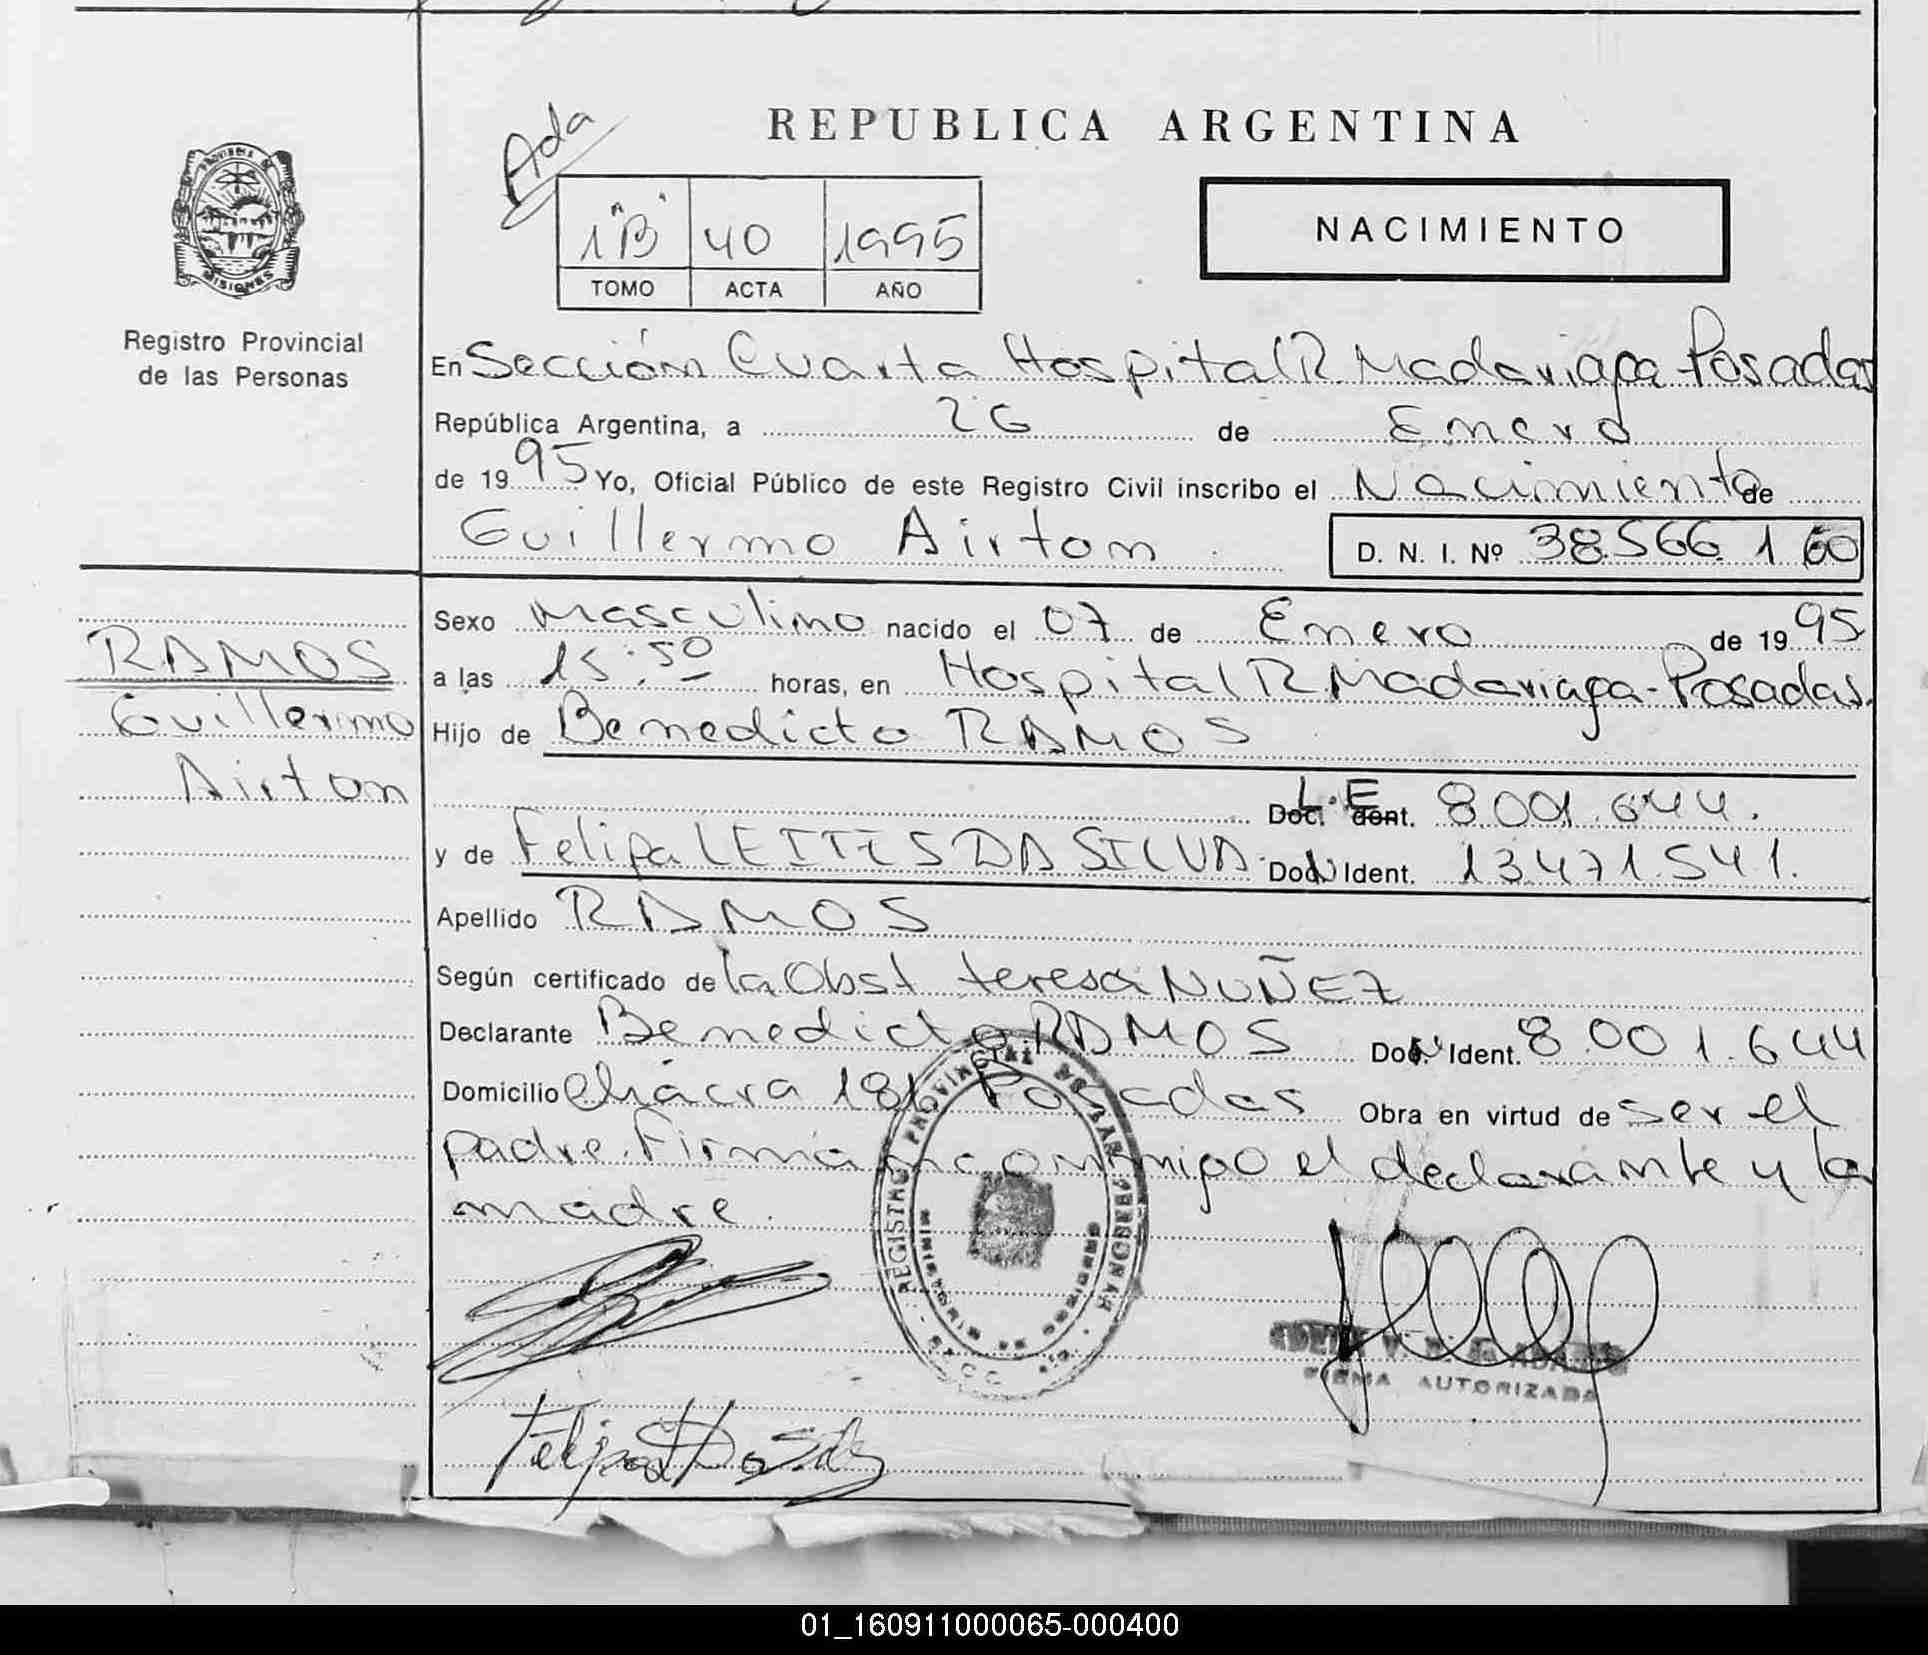 REPUBLICA ARGENTINA
Ada
1"B" 40 1995
TOMO ACTA AÑO
NACIMIENTO
PROVINCIA DE MISIONES
Registro Provincial
de las Personas
En Sección Cuarta Hospital R. Madariaga-Posadas
República Argentina, a 26 de Enero
de 1995 Yo, Oficial Público de este Registro Civil inscribo el Nacimiento de
Guillermo Airton D. N. I. Nº 38.566.160
RAMOS
Guillermo
Airton
Sexo Masculino nacido el 07 de Enero de 1995
a las 15:50 horas, en Hospital R Madariaga-Posadas.
Hijo de Benedicto RAMOS
L.E Doc. Ident. 8.001.644.
y de Felipa LEITES DA SILVA. Doc. Ident. 13.471.541.
Apellido RAMOS
Según certificado de la Obst teresa NUÑEZ
Declarante Benedicto RAMOS Doc. Ident. 8.001.644
Domicilio Chácra 181 Posadas Obra en virtud de ser el
padre. Firma conmigo el declarante y la
madre.
REGISTRO PROVINCIAL DE LAS PERSONAS
MINISTERIO DE GOBIERNO
FIRMA AUTORIZADA
Felipa
01_160911000065-000400